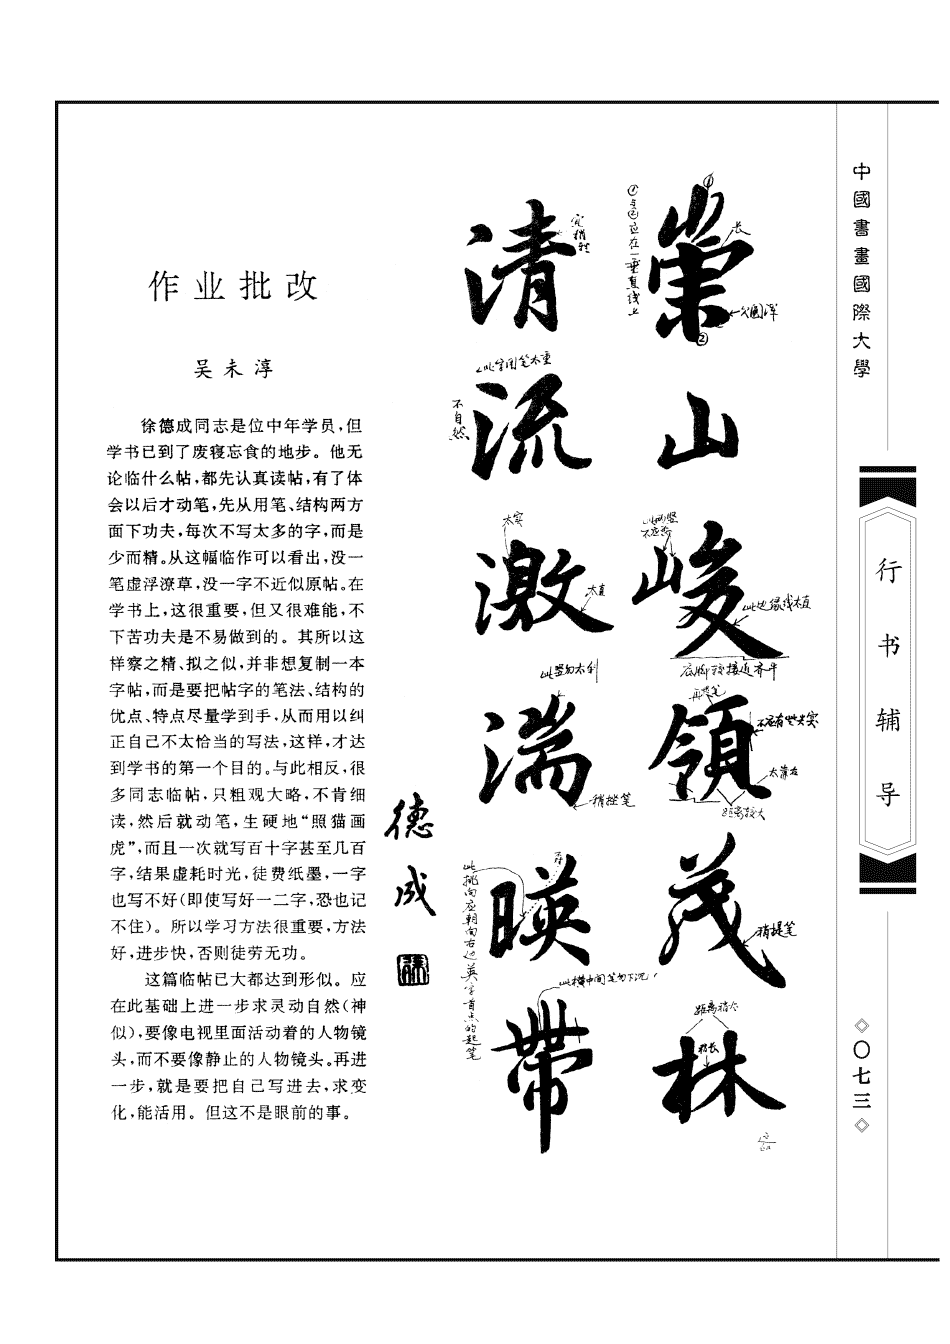 中國書畫國際大學
行书辅导
〇七三
作业批改
吴未淳
徐德成同志是位中年学员,但
学书已到了废寝忘食的地步。他无
论临什么帖,都先认真读帖,有了体
会以后才动笔,先从用笔、结构两方
面下功夫,每次不写太多的字,而是
少而精。从这幅临作可以看出,没一
笔虚浮潦草,没一字不近似原帖。在
学书上,这很重要,但又很难能,不
下苦功夫是不易做到的。其所以这
样察之精、拟之似,并非想复制一本
字帖,而是要把帖字的笔法、结构的
优点、特点尽量学到手,从而用以纠
正自己不太恰当的写法,这样,才达
到学书的第一个目的。与此相反,很
多同志临帖,只粗观大略,不肯细
读,然后就动笔,生硬地“照猫画
虎”,而且一次就写百十字甚至几百
字,结果虚耗时光,徒费纸墨,一字
也写不好(即使写好一二字,恐也记
不住)。所以学习方法很重要,方法
好,进步快,否则徒劳无功。
这篇临帖已大都达到形似。应
在此基础上进一步求灵动自然(神
似),要像电视里面活动着的人物镜
头,而不要像静止的人物镜头。再进
一步,就是要把自己写进去,求变
化,能活用。但这不是眼前的事。
崇山峻領茂林
清流激湍暎带
德成
①与②应在一垂直线上
①
长
②
此两竖
不应
此边缘线太直
底脚须接近齐平
再提笔
太靠左
距离较大
稍提笔
距离稍大
稍长
宜稍轻
不自然
太实
太直
此竖勾太利
稍挫笔
此挑向应朝向右边英字首点的起笔
此横中间笔勿下沉